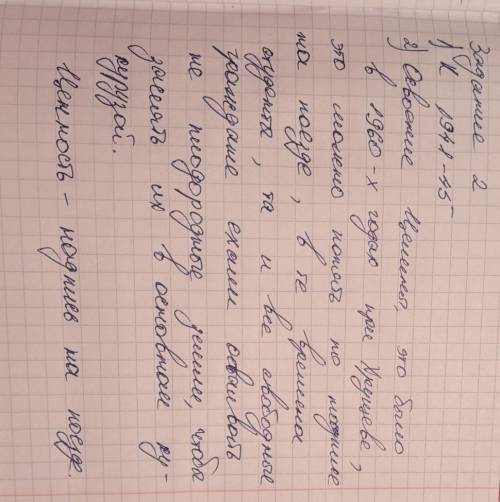 Задание 2
1) К 1941-45
2) Освоение Целины, это было
в 1960-х годах при Хрущеве,
это можно понять по
на поезде, в те времена
студенты, да и все свободные
граждане ехали осваивать
не плодородные земли, чтобы
засеять их в основном ку-
курузой.
Ценность - надпись на поезде.